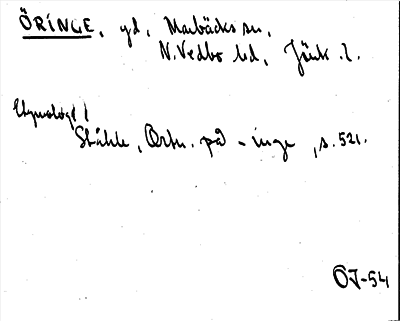 ÖRINGE, gd, Marbäcks sn,
N. Vedbo hd, Jönk. l.
Etymologi
Ståhle, Ortn. på -inge, s. 521.
ÖJ-54